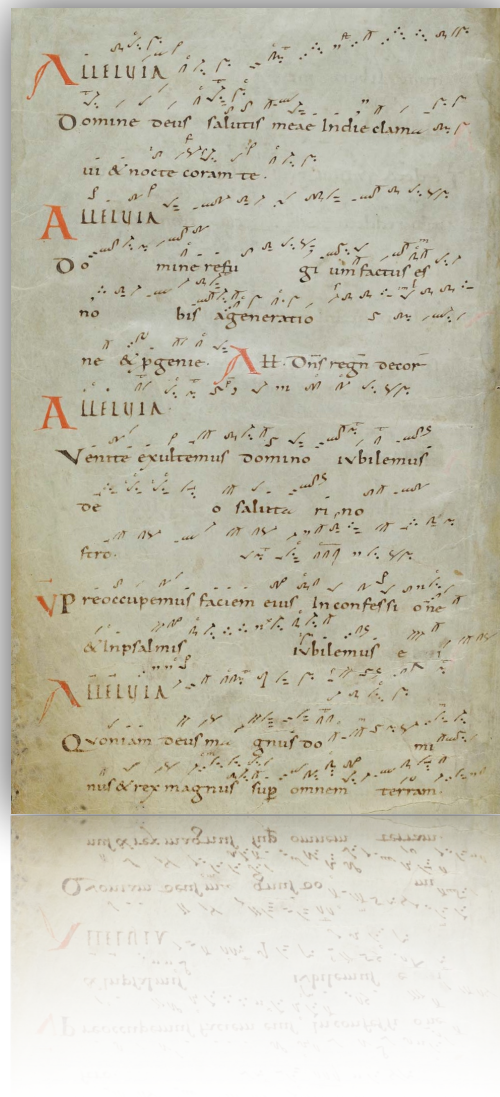 ALLELUIA
Domine deus salutis meae Indie clama
ui & nocte coram te.
ALLELUIA
Do mine refu gi um factus es
no bis ageneratio
ne & pgenie. All. Dns regn decor
ALLELUIA
Venite exultemus domino iubilemus
de o saluta ri no
stro.
VPreoccupemus faciem eius In confessi one
& Inpsalmis iubilemus e i
ALLELUIA
Quoniam deus ma gnus do mi
nus & rex magnus sup omnem terram.